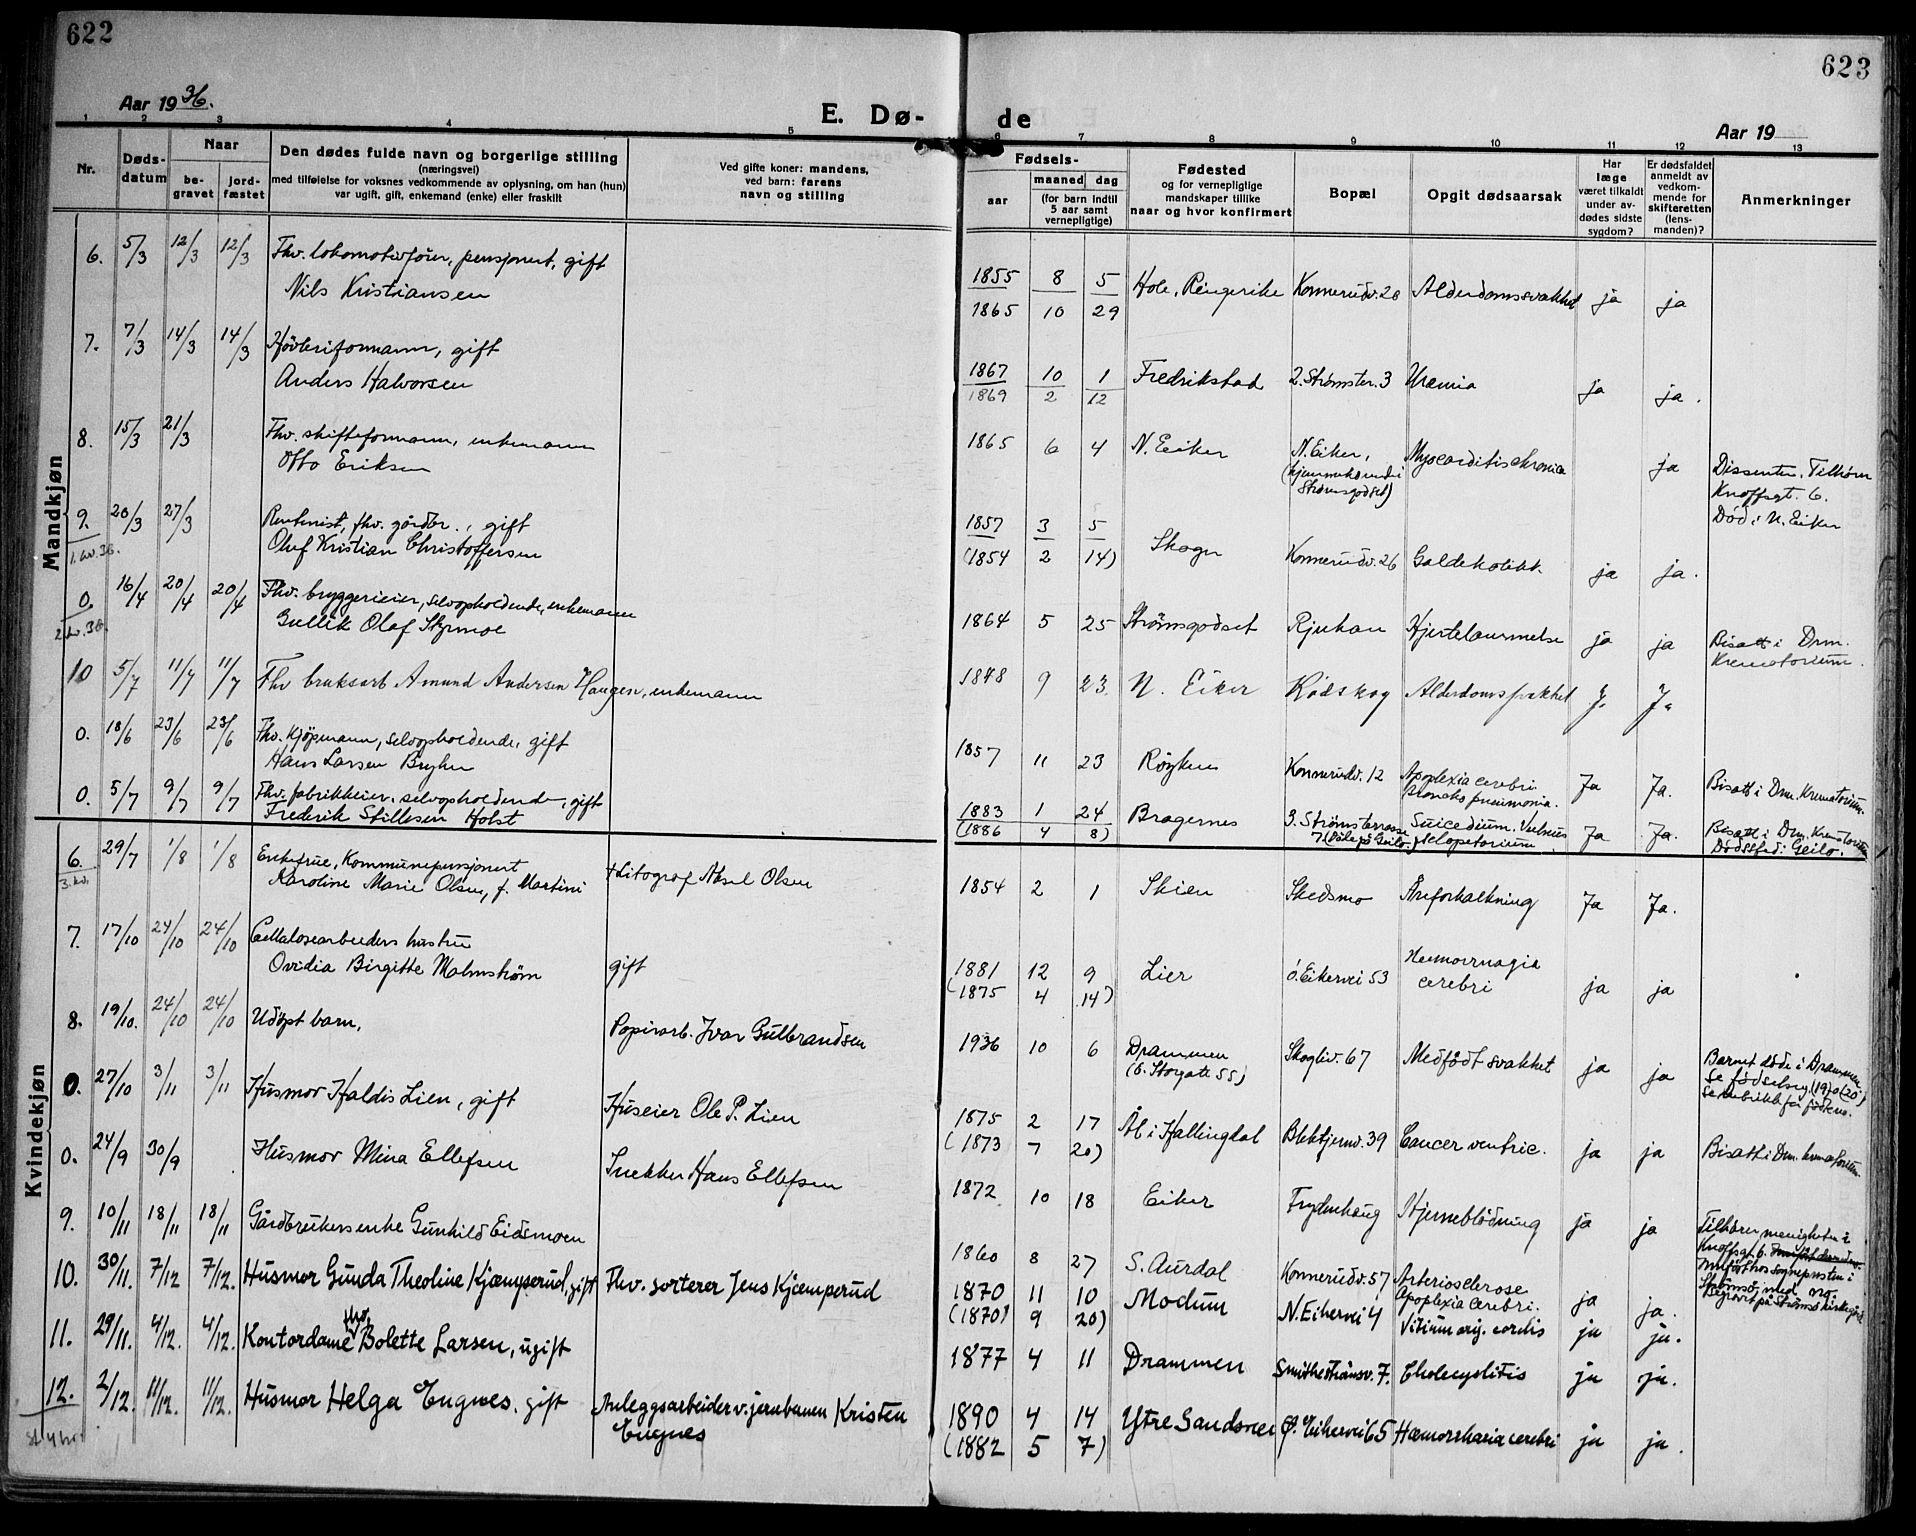 622
623
Aar 1936.
E. Dø-
de
Aar 19
1 2 3 4 5
6 7 8 9 10 11 12 13
Nr.
Døds-
datum
Naar
be-
gravet
jord-
fæstet
Den dødes fulde navn og borgerlige stilling
(næringsvei)
med tilføielse for voksnes vedkommende av oplysning, om han (hun)
var ugift, gift, enkemand (enke) eller fraskilt
Ved gifte koner: mandens,
ved barn: farens
navn og stilling
Fødsels-
aar
maaned dag
(for barn indtil
5 aar samt
vernepligtige)
Fødested
og for vernepligtige
mandskaper tillike
naar og hvor konfirmert
Bopæl
Opgit dødsaarsak
Har
læge
været tilkaldt
under av-
dødes sidste
sygdom?
Er dødsfaldet
anmeldt av
vedkom-
mende for
skifteretten
(lens-
manden)?
Anmerkninger
Mandkjøn
6. 5/3 12/3 12/3 Fhv. lokomotivfører, pensjonert, gift
Nils Kristiansen
1855 8 5 Hole, Ringerike Konnerudv. 20 Alderdomssvakhet ja ja
1865 10 29
7. 7/3 14/3 14/3 Høvleriformann, gift
Anders Halvorsen
1867 10 1 Fredrikstad 2. Strømster. 3 Uræmia ja ja.
1869 2 12
8. 15/3 21/3 Fhv. skifteformann, enkemann
Otto Eriksen
1865 6 4 N. Eiker N. Eiker, Myocarditis chronica ja Dissenter. Tilhører
(hjemmehørende i
Strømsgodset)
Knoffsgt. 6.
Død i N. Eiker
9. 20/3 27/3 Rentenist, fhv. gårdbr., gift
1. kv. 36. Oluf Kristian Christoffersen
1857 3 5 Skoger Konnerudv. 26 Galdekolikk ja ja.
(1854 2 14)
0. 16/4 20/4 20/4 Fhv. bryggerieier, selvopholdende, enkemann
2 kv. 36. Gullik Olaf Skrimoe
1864 5 25 Strømsgodset Rjukan Hjertelammelse ja ja Bisatt i Drm.
Krematorium.
10 5/7 11/7 11/7 Fhv bruksarb Amund Andersen Haugen, enkemann
1848 9 23. N. Eiker Rødskog Alderdomssvakhet J. J.
0. 18/6 23/6 23/6 Fhv. Kjøpmann, selvopholdende, gift
Hans Larsen Bryhn
1857 11 23 Røyken Konnerudv. 12 Apoplexia cerebri Ja Ja. Bisatt i Drm. Krematorium.
Broncho pneumonia.
0. 5/7 9/7 9/7 Fhv. fabrikkeier, selvopholdende, gift
Frederik Stillesen Holst
1883 1 24 Bragernes 3. Strømsterrasse Suicedium. Vulnus Ja Ja. Bisatt i Drm. Krematorium
(1886 4 8) 7 (Døde på Geilo.) sclopetarium Dødssted: Geilo.
Kvindekjøn
6. 29/7 1/8 1/8 Enkefrue, Kommunepensjonert
3. kv. Karoline Marie Olsen, f. Martini † Litograf Aksel Olsen
1854 2 1 Skien Skedsmo Åreforkalkning Ja Ja.
7. 17/10 24/10 24/10 Cellulosearbeiders hustru
Ovidia Birgitte Malmstrøm gift
1881 12 9 Lier ø. Eikervei 53 Hemorrhagia ja ja
(1875 4 14) cerebri
8. 19/10. 24/10 24/10 Udøpt barn, Papirarb. Ivar Gulbrandsen
1936 10 6 Drammen Skogliv. 67 Medfødt svakhet ja ja Barnet døde i Drammen.
(ö. Storgate 55)
0. 27/10 3/11 3/11 Husmor Haldis Lien, gift Huseier Ole P. Lien
1875 2 17 Ål i Hallingdal Blektjernv. 39 Cancer ventric. ja ja Bisatt i Drm. krematorium.
(1873 7 20)
0. 24/9 30/9 Husmor Mina Ellefsen Snekker Hans Ellefsen
1872 10 18 Eiker Frydenhaug Hjerneblødning ja ja Tilhører menigheten i
Knoffsgt. 6.
9. 10/11 18/11 18/11 Gårdbrukers enke Gunhild Eidsmoen
1860 8 27 S. Aurdal Konnerudv. 57 Arteriosclerose ja ja.
Apoplexia cerebri.
Innført hos sognepresten i
Strømsø med no.
Begravet på Strømsø kirkegård
10. 30/11. 7/12 7/12. Husmor Gunda Theoline Kjæmperud, gift Fhv. sorterer Jens Kjæmperud
1870 11 10 Modum N. Eikervei 4 Vitium org. cordis ja ja.
(1870) 9 20)
11. 29/11. 4/12. 4/12. Kontordame fhv. Bolette Larsen, ugift
1877 4 11 Drammen Smithestrømsv. 7. Cholecystitis ja ja.
12. 2/12. 11/12. 11/12. Husmor Helga Engnes, gift Anleggsarbeider v. jernbanen Kristen
Engnes
1890 4 14 Ytre Sandsvær Ø. Eikervei 65 Hæmorrhagia cerebri ja ja.
(1882 5 7)